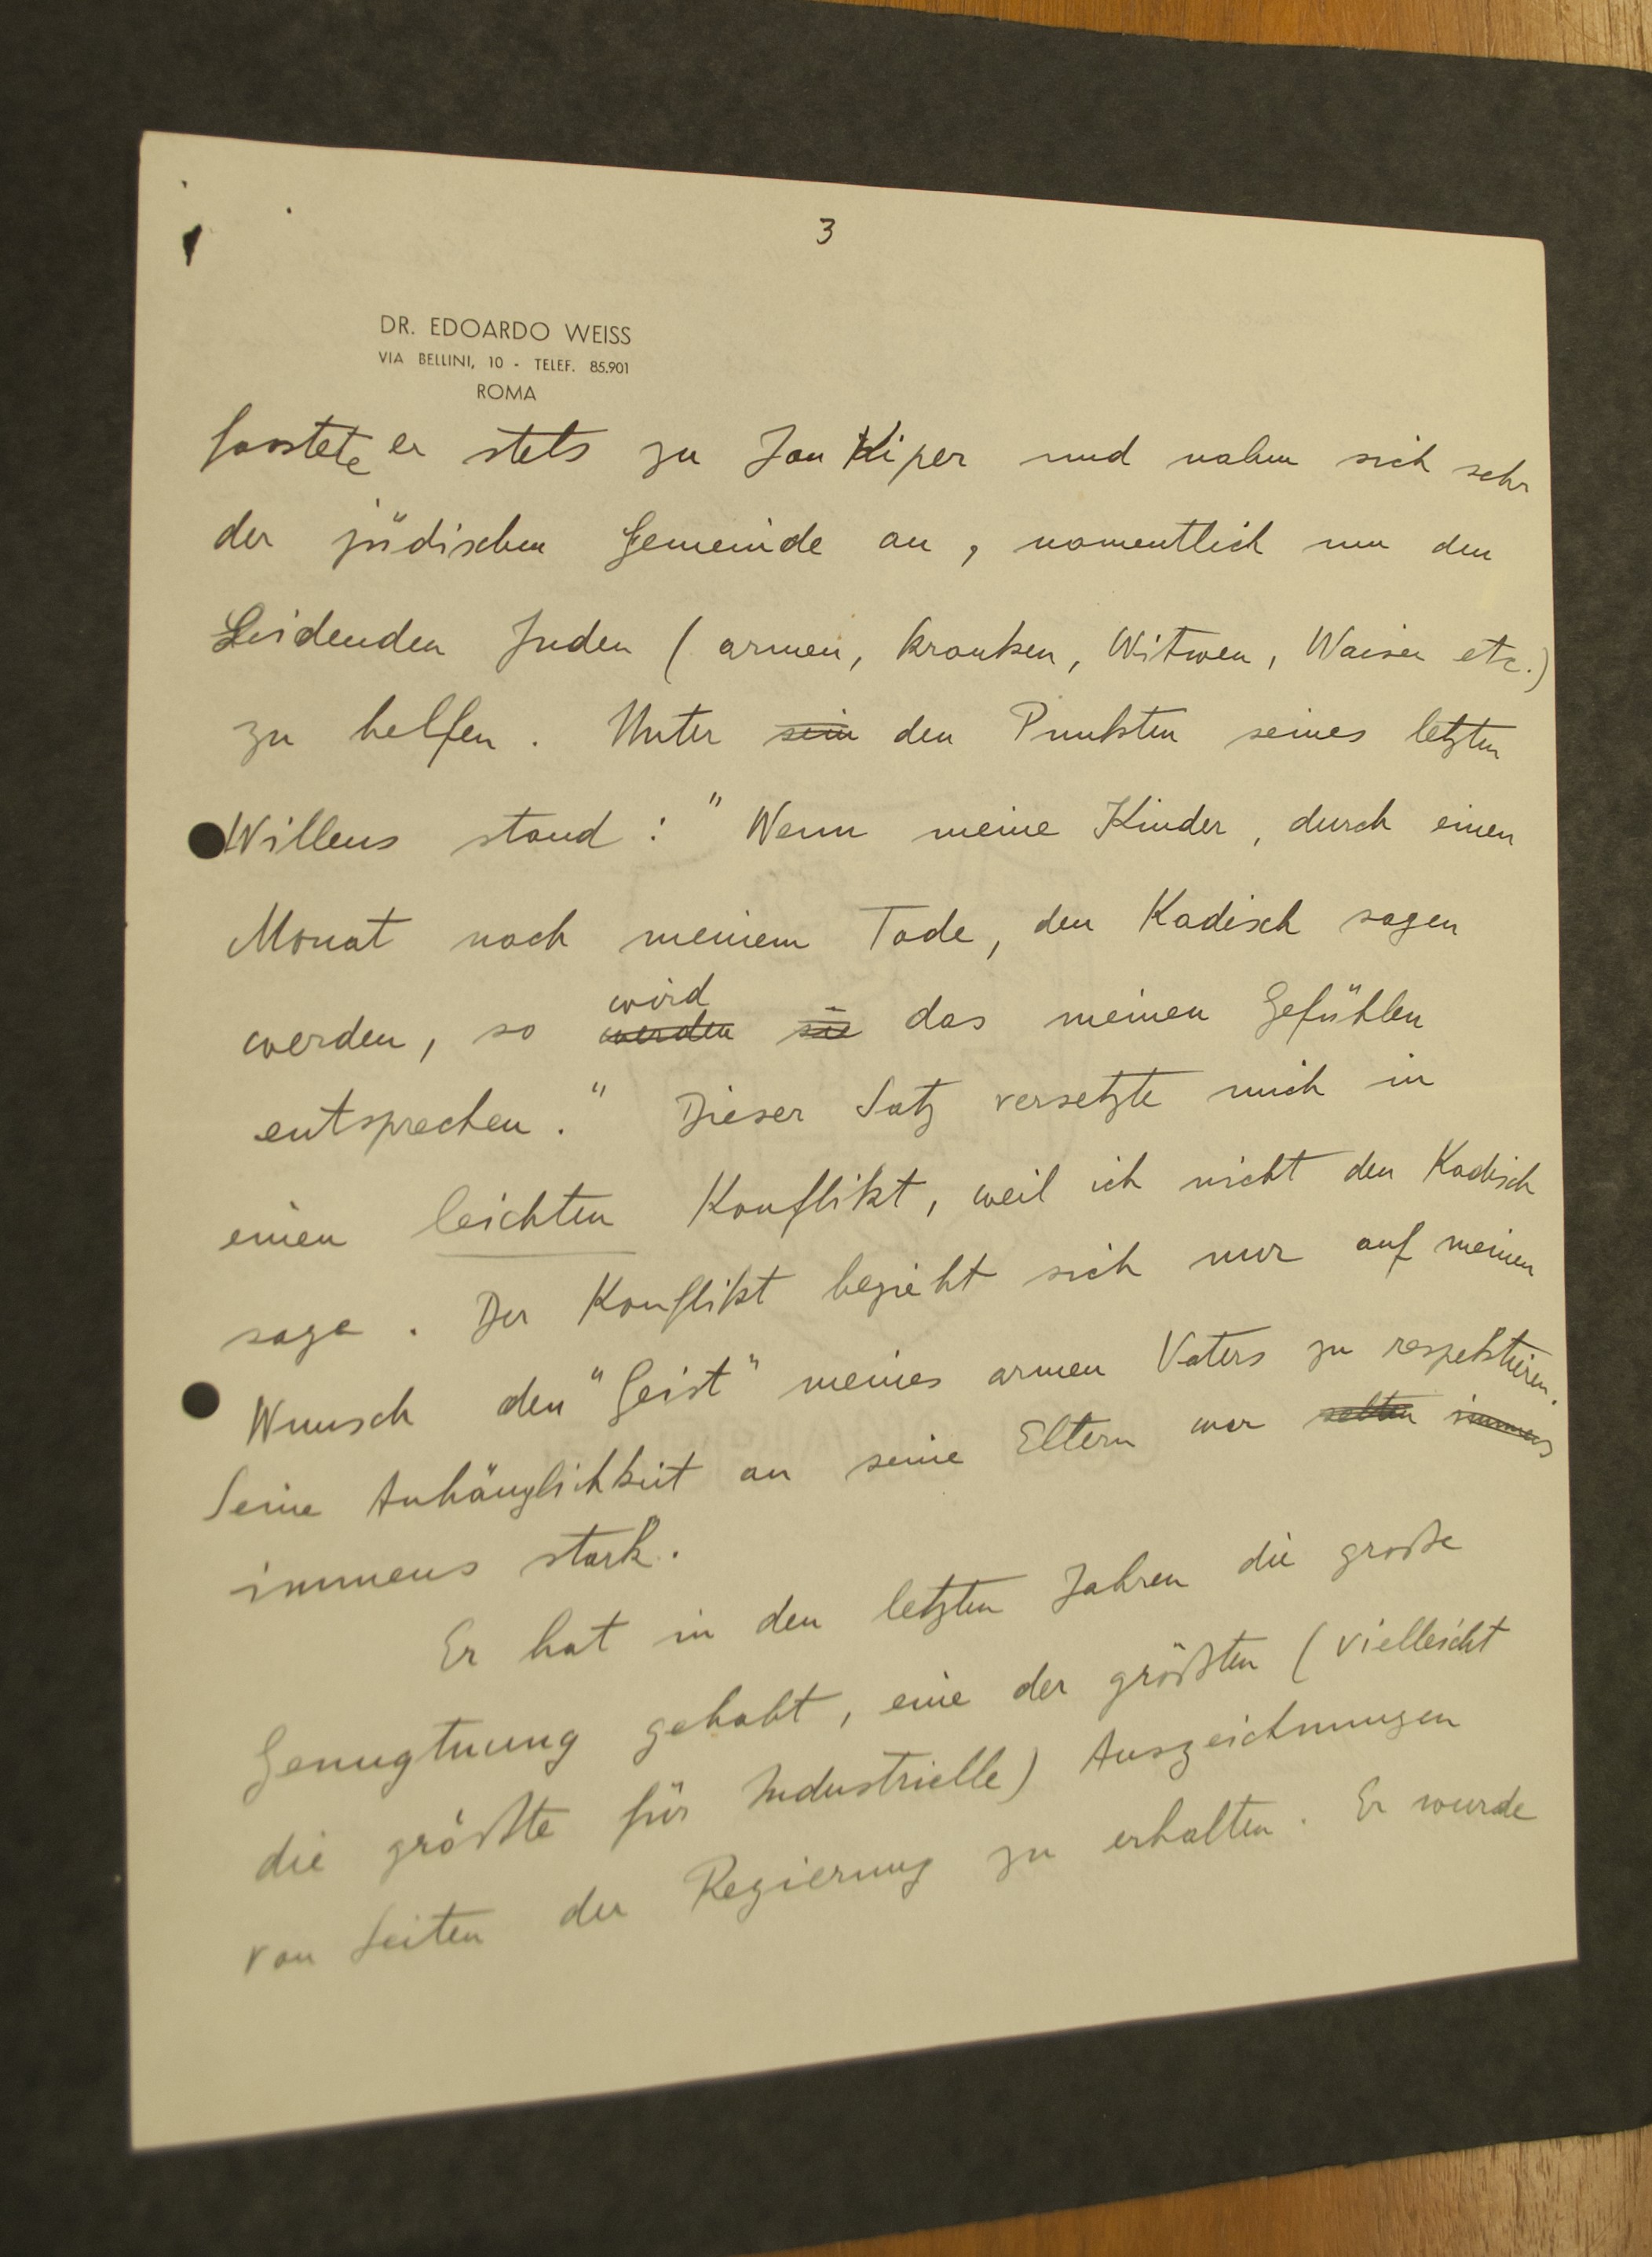 3
DR. EDOARDO WEISS
VIA BELLINI, 10 - TELEF. 85.901
ROMA
fastete er stets zu Jon Kiper und nahm sich sehr
der jüdischen Gemeinde an, namentlich um den
Leidenden Juden (armen, kranken, Witwen, Waisen etc.)
zu helfen. Unter sein den Punkten seines letzten
Willens stand: "Wenn meine Kinder, durch einen
Monat nach meinem Tode, den Kadisch sagen
wird
werden, so werden sie das meinen Gefühlen
entsprechen." Dieser Satz versetzte mich in
einen leichten Konflikt, weil ich nicht den Kadisch
sage. Der Konflikt bezieht sich nur auf meinen
Wunsch den "Geist" meines armen Vaters zu respektieren.
Seine Anhänglichkeit an seine Eltern war selten immens
immens stark.
Er hat in den letzten Jahren die große
Genugtuung gehabt, eine der größten (vielleicht
die größte für Industrielle) Auszeichnungen
von Seiten der Regierung zu erhalten. Er wurde